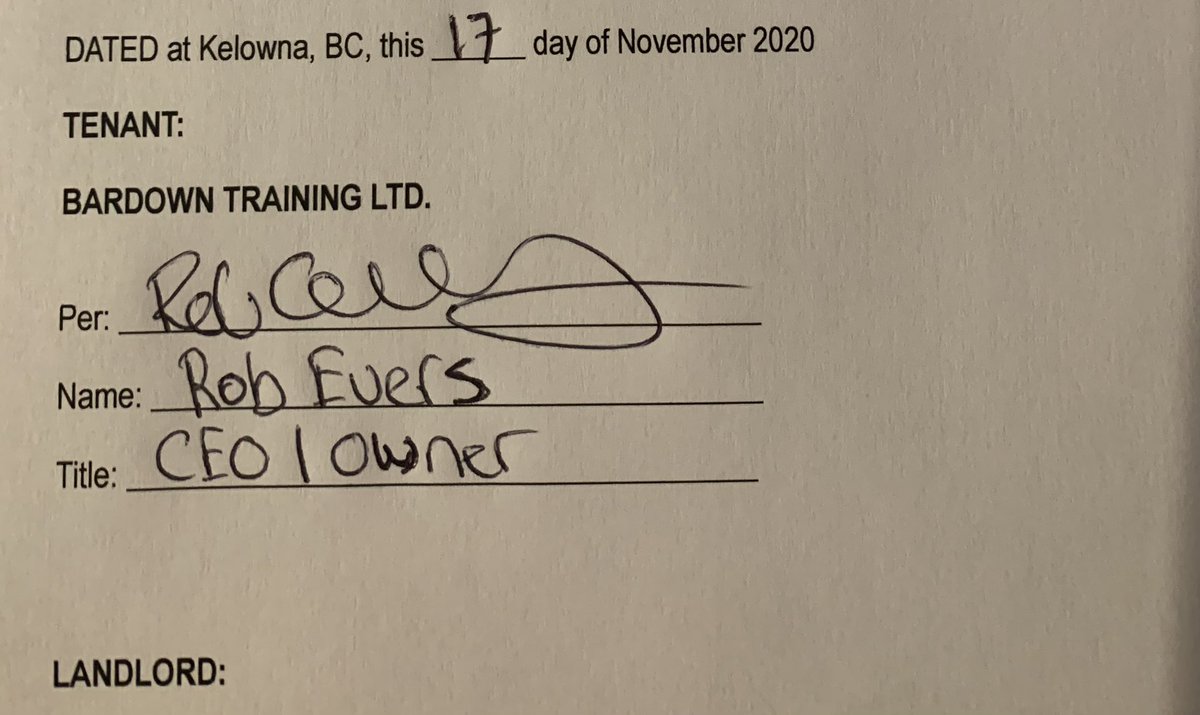 DATED at Kelowna, BC, this 17 day of November 2020
TENANT:
BARDOWN TRAINING LTD.
Per: Rob
Name: Rob Evers
Title: CEO / Owner
LANDLORD: